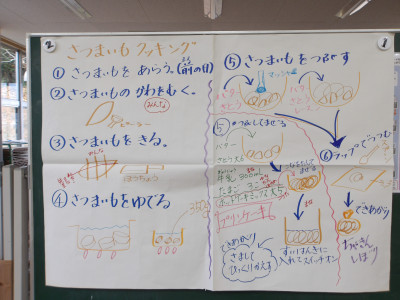 2
さつまいも クッキング
① さつまいもを あらう。(前の日)
② さつまいもの かわをむく。
みんな
ピーラー
③ さつまいもを きる。
ほうちょう
④ さつまいもを ゆでる
1
⑤ さつまいもを つぶす
マッシャー
バター
さとう
⑤ つぶしてまぜる
バター
さとう 大6
たまご 3こ
ホットケーキミックス
できあがり
さまして
ひっくりかえす
すいはんきに
入れてスイッチオン
⑥ ラップでつつむ
できあがり
ちゃきん
しぼり